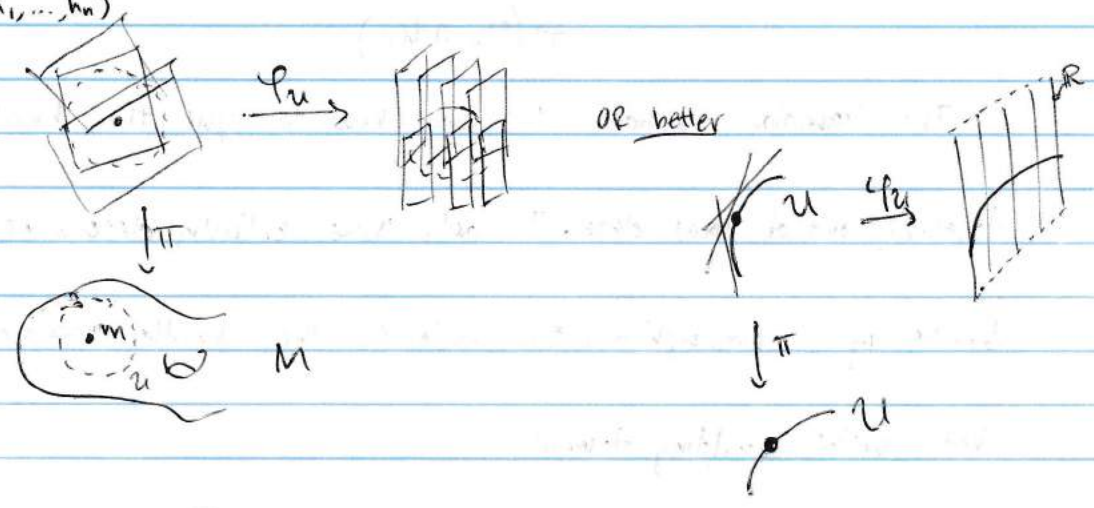 ,...,hₙ)
φ_u
OR better
ℝ
U φ_u
π
m
u
M
π
U